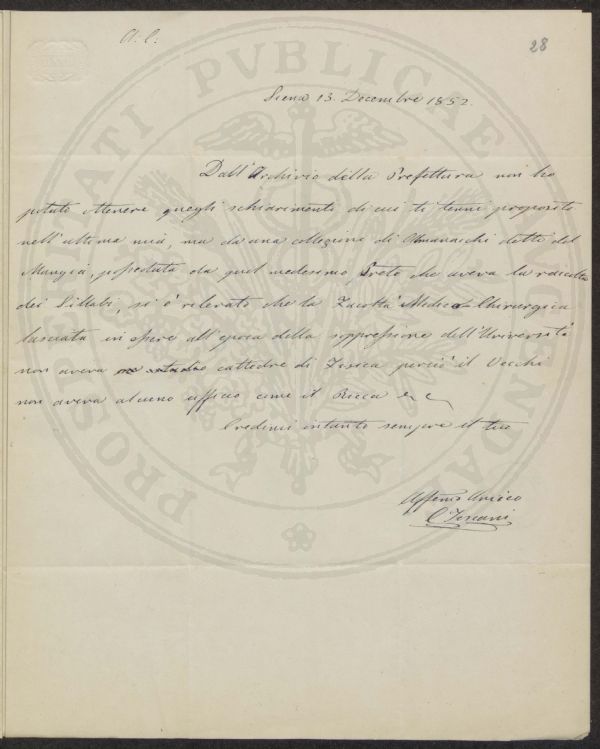 A. C.
28
Siena 13. Decembre 1852.
Dall'Archivio della Prefettura non ho
potuto ottenere quegli schiarimenti di cui ti tenni proposito
nell'ultima mia, ma da una collezione di Almanacchi detti del
Mangia, posseduta da quel medesimo Prete che aveva la raccolta
dei Sillabi, si è rilevato che la Facoltà Medico-Chirurgica
lasciata in essere all'epoca della soppressione dell'Università
non aveva cattedre di Fisica perciò il Vecchi
non aveva alcuno ufficio come il Ricca
Credimi intanto sempre il tuo
Affezmo Amico
C. Toscani
PROSPERITATI PVBLICAE